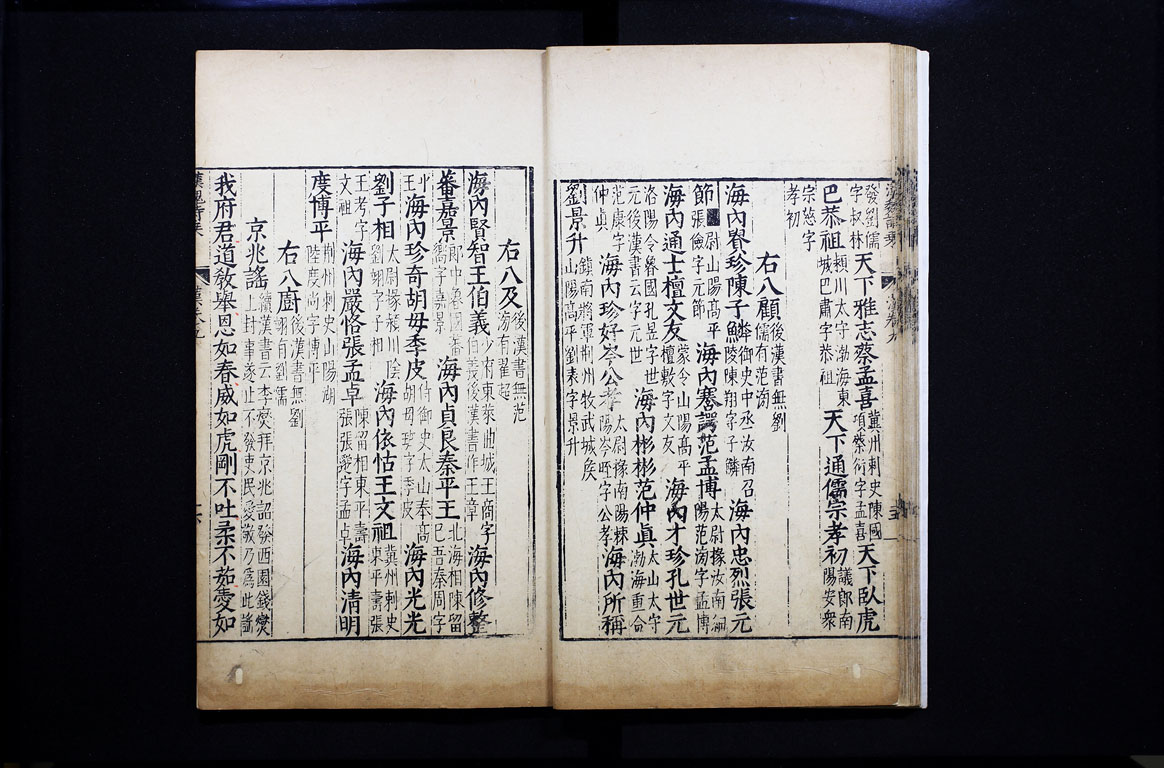 發劉儒字叔林天下雅志蔡孟喜冀州刺史陳國項蔡衍字孟喜天下臥虎
巴恭祖潁川太守渤海東城巴肅字恭祖天下通儒宗孝初議郎南陽安衆
宗慈字孝初
右八顧後漢書無劉儒有范滂
海內賢珍陳子鱗御史中丞汝南召陵陳翔字子鱗海內忠烈張元
節尉山陽高平張儉字元節海內謇諤范孟博太尉掾汝南細陽范滂字孟博
海內通士檀文友蒙令山陽高平檀敷字文友海內才珍孔世元
洛陽令魯國孔昱字世元後漢書云字元世海內彬彬范仲眞太山太守渤海重合
范康字仲眞海內珍好岑公孝太尉掾南陽棘陽岑晊字公孝海內所稱
劉景升鎮南將軍荆州牧武城矦山陽高平劉表字景升
右八及後漢書無范滂有翟超
海內賢智王伯義少府東萊曲城王商字伯義後漢書作王章海內修整
蕃嘉景郎中魯國蕃嚮字嘉景海內貞良秦平王北海相陳留己吾秦周字
平王海內珍奇胡毋季皮侍御史太山奉高胡毋班字季皮海內光光
劉子相太尉掾潁川陰劉翊字子相海內依怙王文祖冀州刺史東平壽張
王考字文祖海內嚴恪張孟卓陳留相東平壽張張邈字孟卓海內清明
度博平荆州刺史山陽湖陸度尚字博平
右八廚後漢書無劉翊有劉儒
京兆謠續漢書云李燮拜京兆詔發西園錢燮上封事遂止不發吏民愛敬乃爲此謠
我府君道敎舉恩如春威如虎剛不吐柔不茹愛如